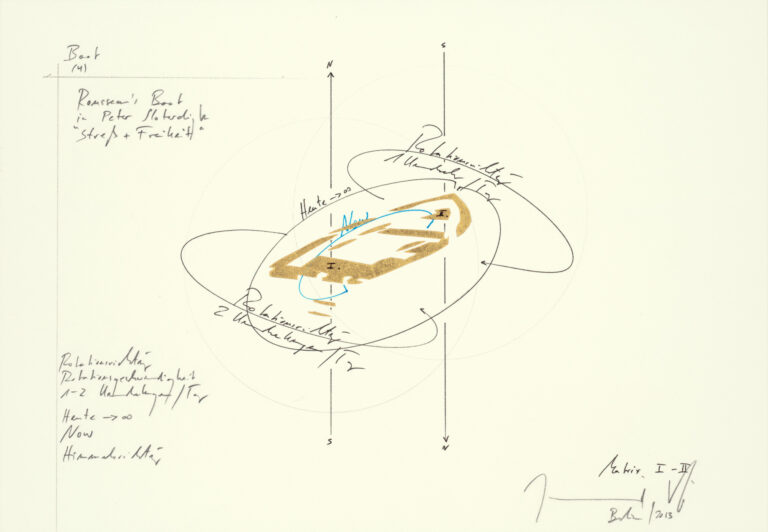 Boot
(4)
Rousseau's Boot
in Peter Sloterdijk
"Streß + Freiheit"
N
S
Rotationsrichtg
1 Umdrehg/Tag
Heute → ∞
Now
II.
I.
Rotationsrichtg
2 Umdrehungen/Tag
Rotationsrichtg
Rotationsgeschwindigkeit
1-2 Umdrehungen/Tag
Heute → ∞
Now
Himmelsrichtg
S
N
Matrix I - II
Berlin/2013